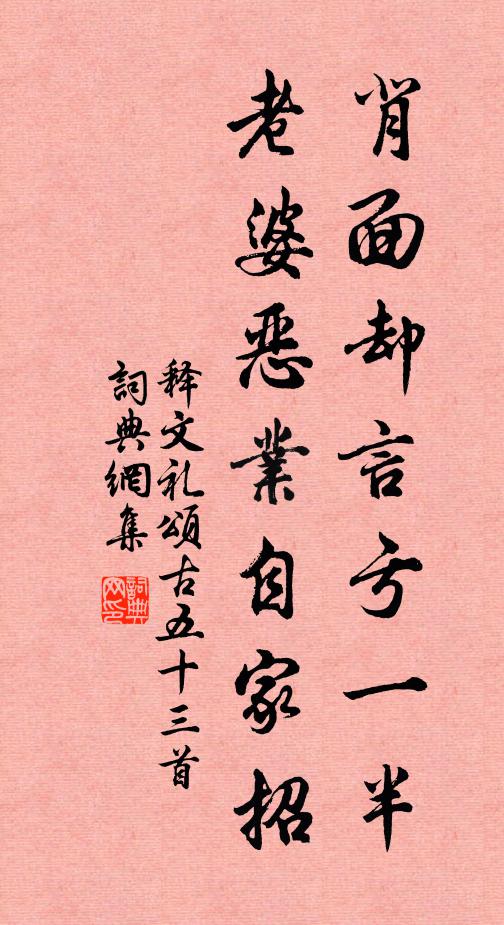 肖面却言亏一半
老婆恶業自家招
释文礼頌古五十三首
詞典網集
詞典
网印